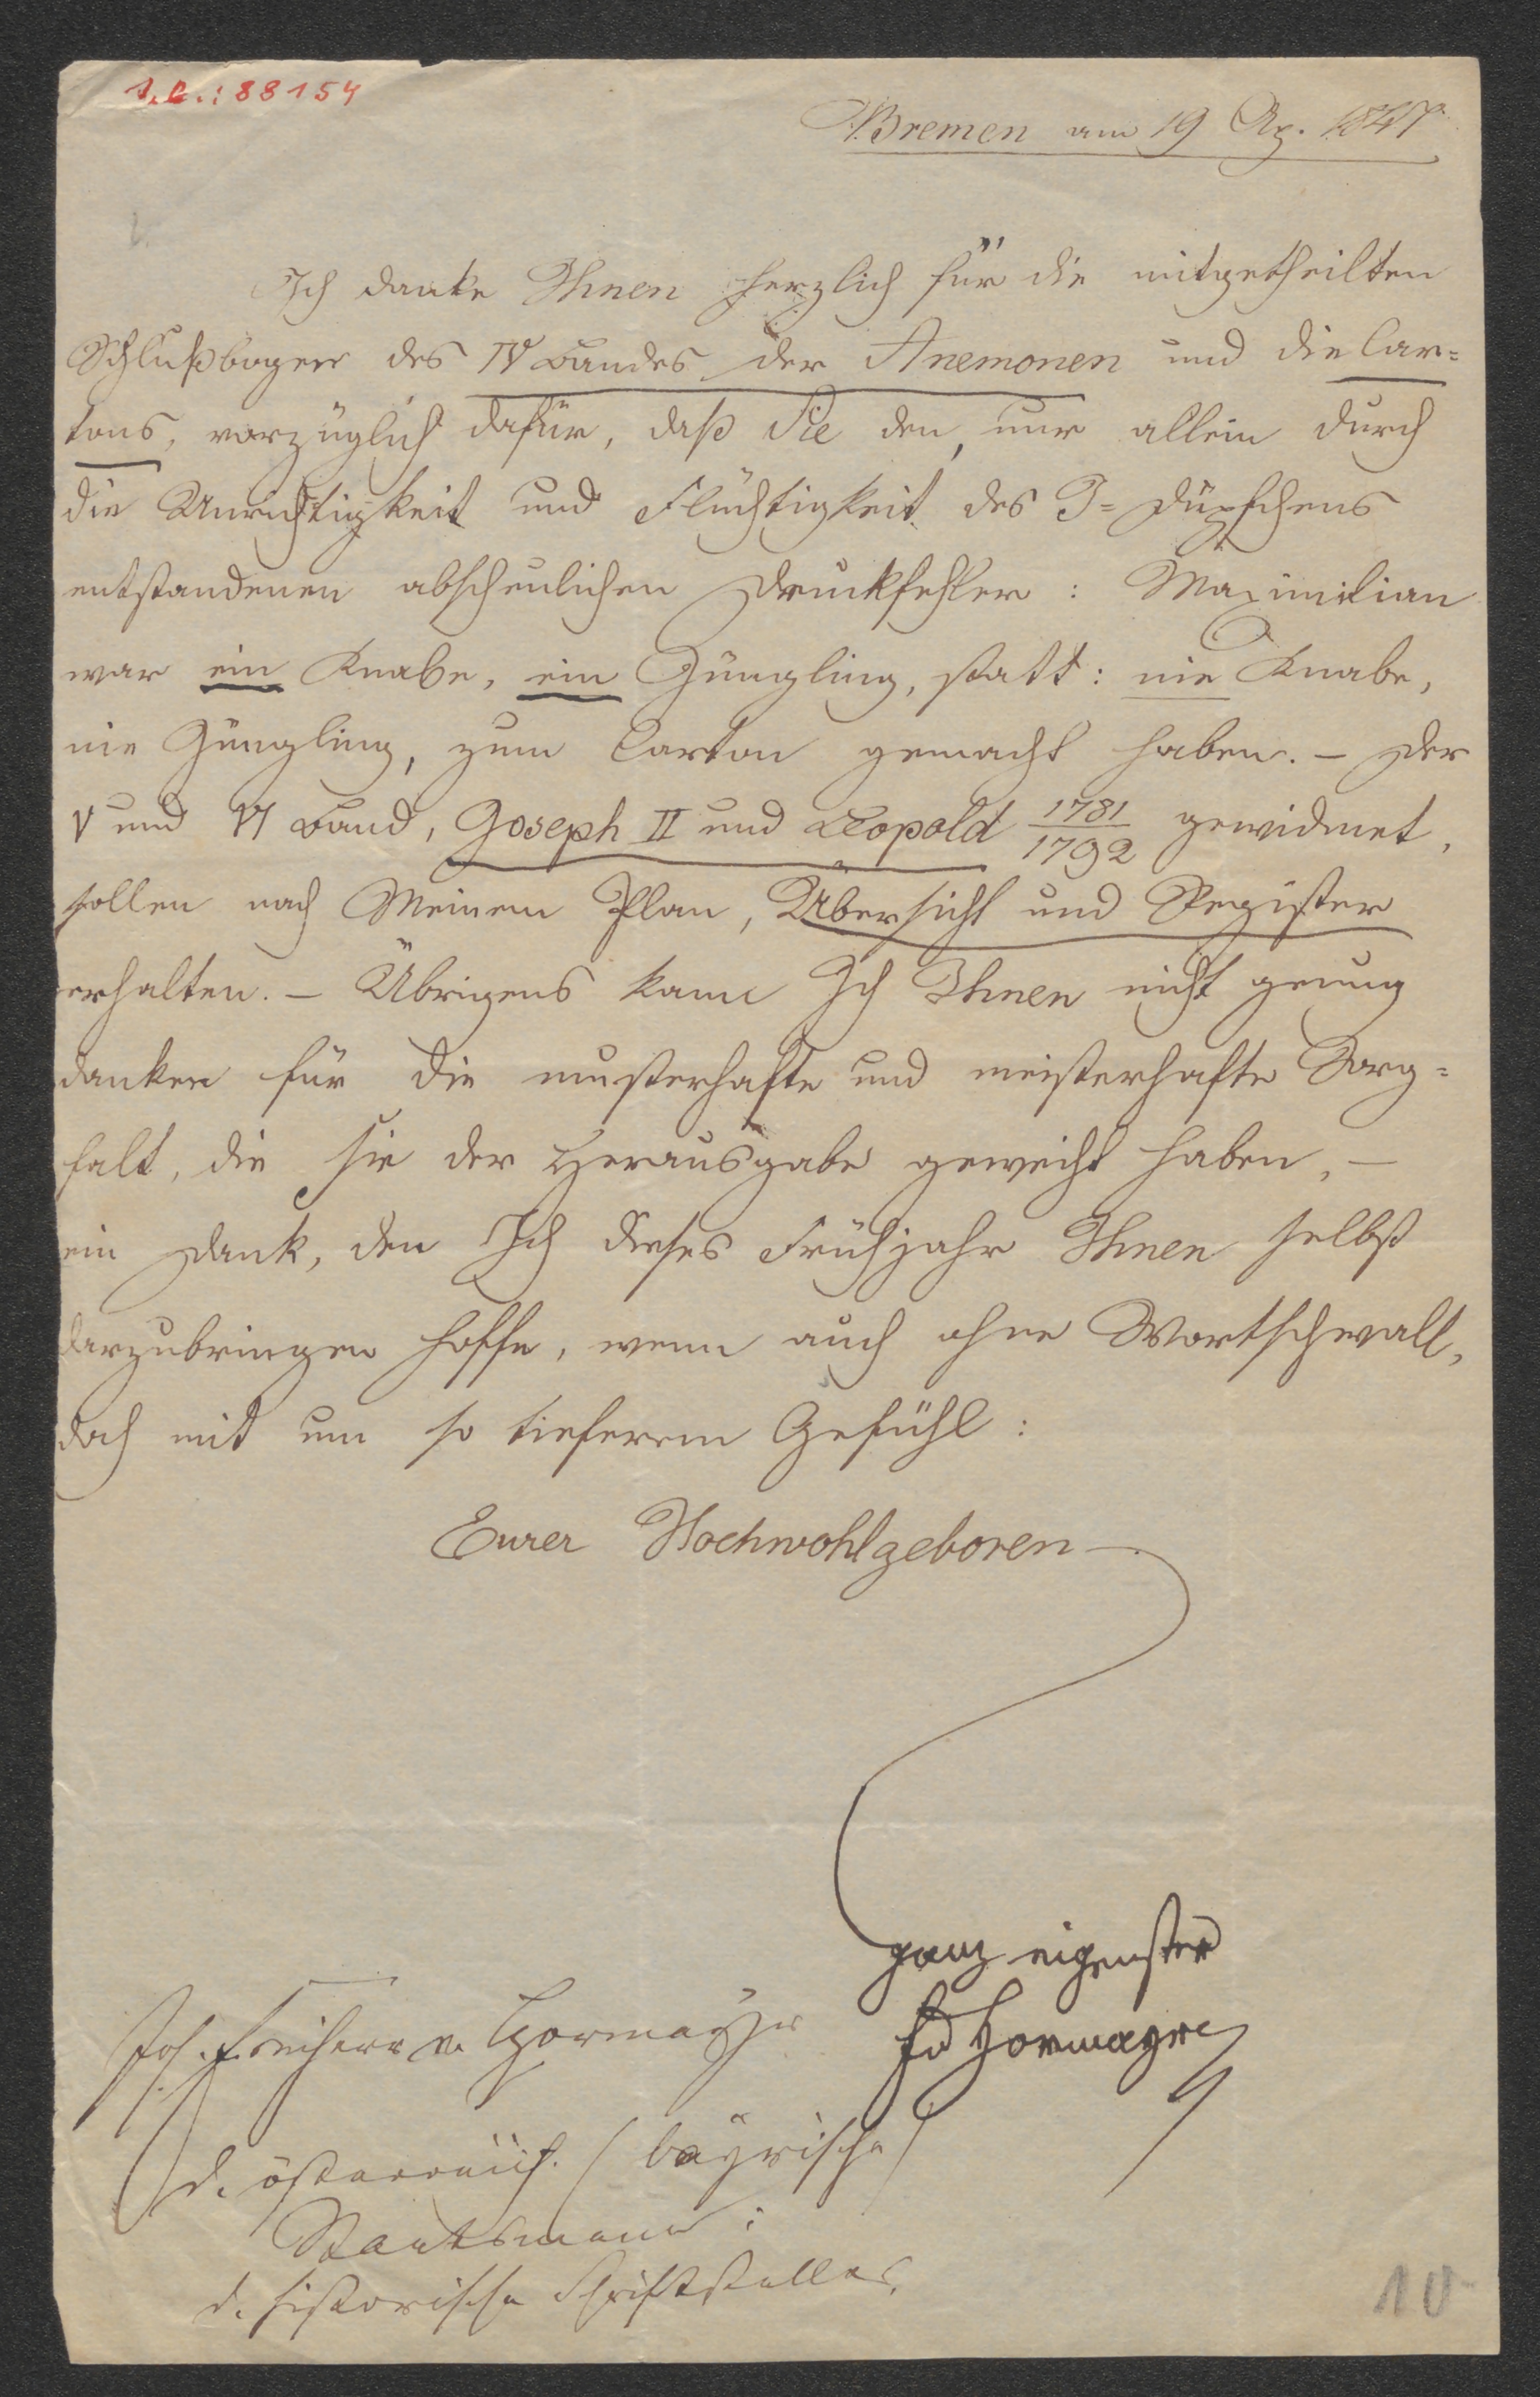 I.N.: 88154
Bremen am 19 Ap. 1847
Ich danke Ihnen herzlich für die mitgetheilten
Schlußbogen des IV Bandes der Anemonen und die Car=
tons, vorzüglich dafür, daß Sie den, nur allein durch
die Unrichtigkeit und Flüchtigkeit des I= Düpfchens
entstandenen abscheulichen Druckfehler: Maximilian
war ein Knabe, ein Jüngling, statt: nie Knabe,
nie Jüngling, zum Carton gemacht haben. – Der
V und VI Band, Joseph II und Leopold 1781/1792 gewidmet,
sollen nach Meinem Plan, Übersicht und Register
erhalten. – Übrigens kann Ich Ihnen nicht genug
danken für die musterhafte und meisterhafte Sorg=
falt, die sie der Herausgabe geweiht haben, –
ein Dank, den Ich dieses Frühjahr Ihnen selbst
darzubringen hoffe, wenn auch ohne Wortschwall,
doch mit um so tieferem Gefühl:
Eurer Hochwohlgeboren
ganz eigenster
Fd Hormayr
Jos. Freiherr v. Hormayr
d. österreich. (bayrische)
Staatsmann;
d. historische Schriftsteller.
10